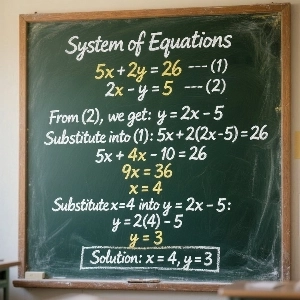 System of Equations
5x + 2y = 26 --- (1)
2x - y = 5 --- (2)
From (2), we get: y = 2x - 5
Substitute into (1): 5x + 2(2x - 5) = 26
5x + 4x - 10 = 26
9x = 36
x = 4
Substitute x = 4 into y = 2x - 5:
y = 2(4) - 5
y = 3
Solution: x = 4, y = 3